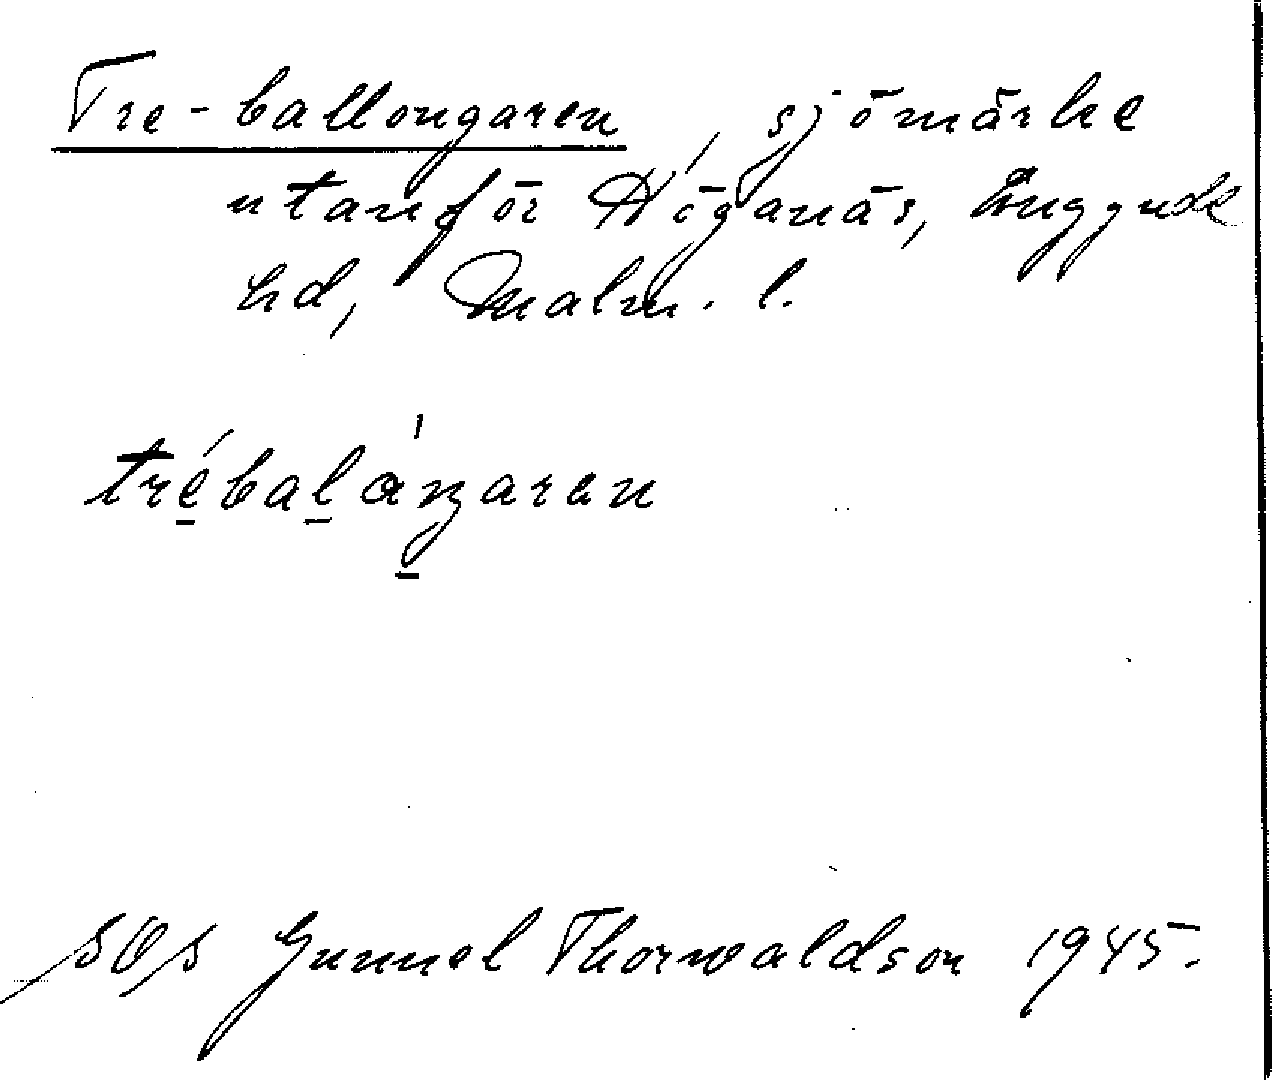 Tre-ballongaren, sjömärke
utanför Höganäs, Luggude
hd, Malm. l.
trébalåŋaren
SOS Gunnel Thorwaldson 1945.